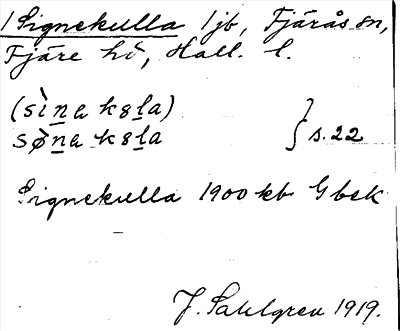 1 Signekulla 1jb, Fjärås sn,
Fjäre hd, Hall. l.
(sìna k8la)
søna k8la } s. 22
Signekulla 1900 kb Gbsk
J. Sahlgren 1919.